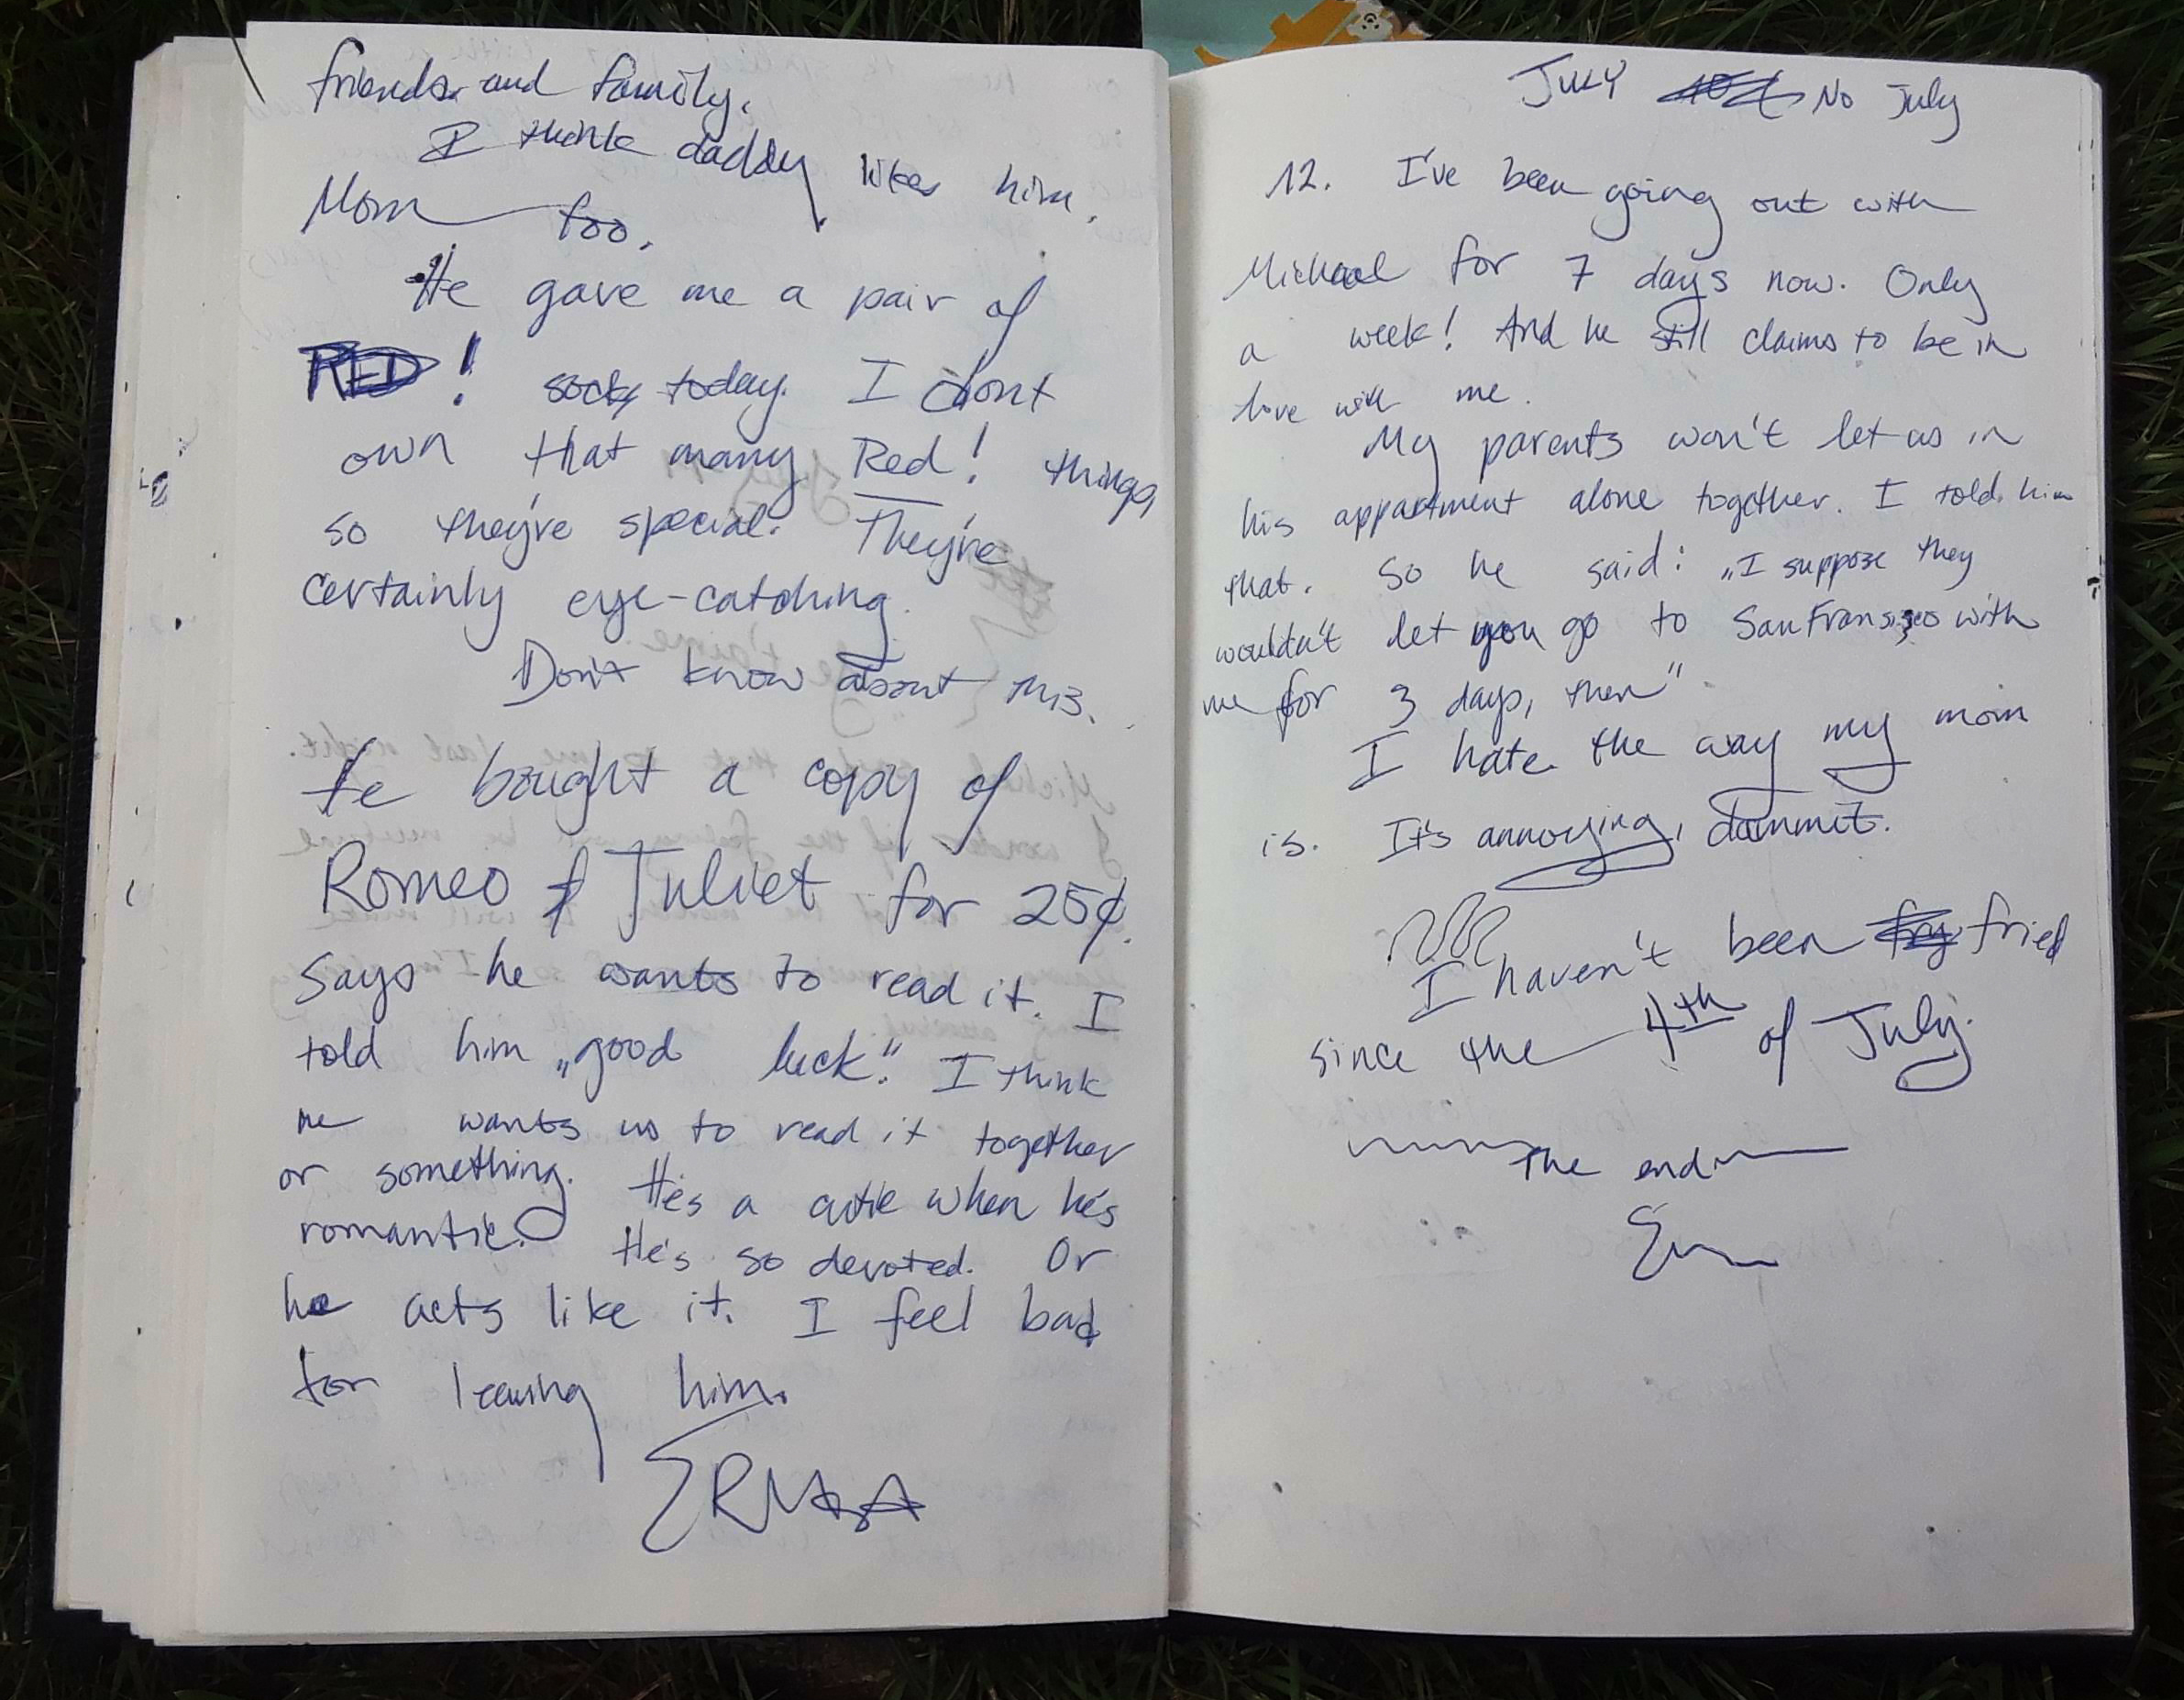 friends and family.
I think daddy likes him.
Mom too.
He gave me a pair of
RED! socks today. I dont
own that many Red! things,
so they're special. They're
certainly eye-catching.
Don't know about this.
He bought a copy of
Romeo & Juliet for 25¢.
Says he wants to read it. I
told him „good luck." I think
he wants us to read it together
or something. He's a cutie when he's
romantic. He's so devoted. Or
he acts like it. I feel bad
for leaving him.
July No July
12. I've been going out with
Michael for 7 days now. Only
a week! And he still claims to be in
love with me.
My parents won't let us in
his appartment alone together. I told him
that. So he said: „I suppose they
wouldn't let you go to San Fransisco with
me for 3 days, then".
I hate the way my mom
is. It's annoying, dammit.
I haven't been fried
since the 4th of July.
The end